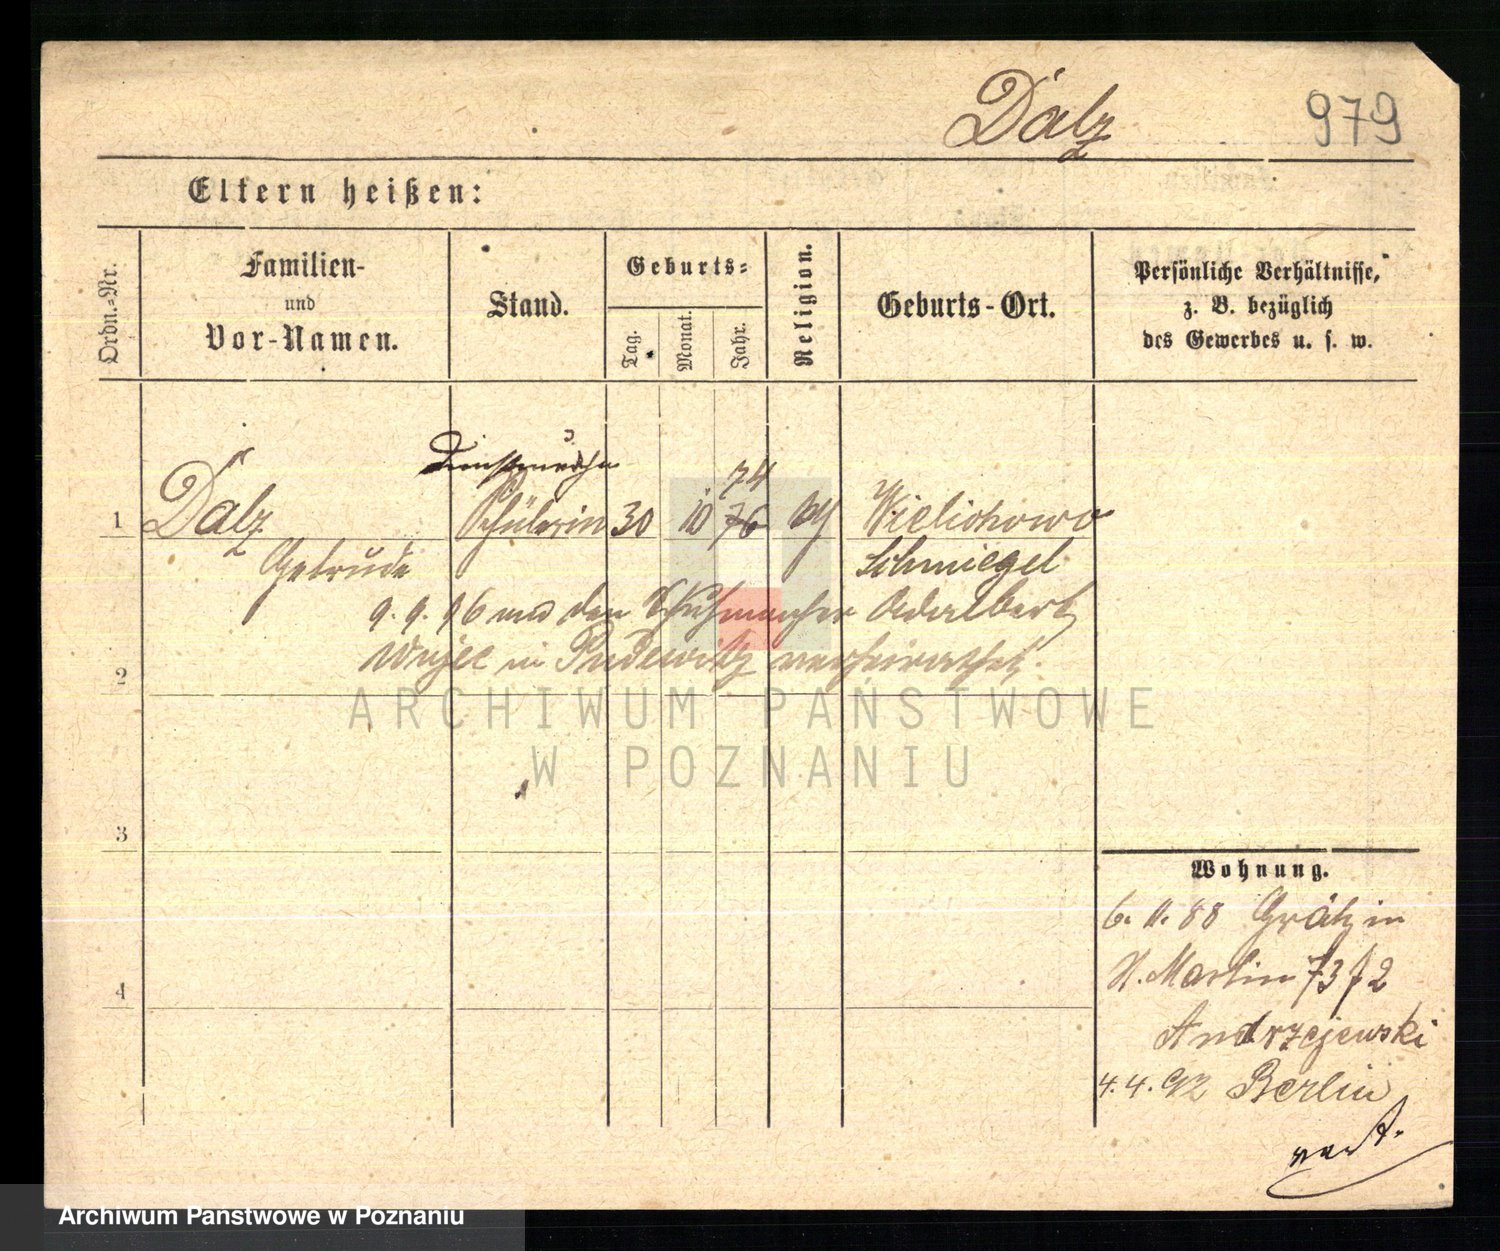 Dalz
979
Eltern heißen:
Ordn.-Nr.
Familien-
und
Vor-Namen.
Stand.
Geburts-
Tag.
Monat.
Jahr.
Religion.
Geburts-Ort.
Persönliche Verhältnisse,
z. B. bezüglich
des Gewerbes u. s. w.
74
1 Dalz Schülerin 30 10 76 Wielichowo
Getrude Schmiegel
9. 9. 96 mit dem Schuhmacher Adalbert
in Pudewitz verheirathet.
2
3
4
Wohnung.
6. 11. 88 Grätz in
St. Martin 73 f 2
Andrzejewski
4. 4. 92 Berlin
vert.
ARCHIWUM PAŃSTWOWE
W POZNANIU
Archiwum Państwowe w Poznaniu